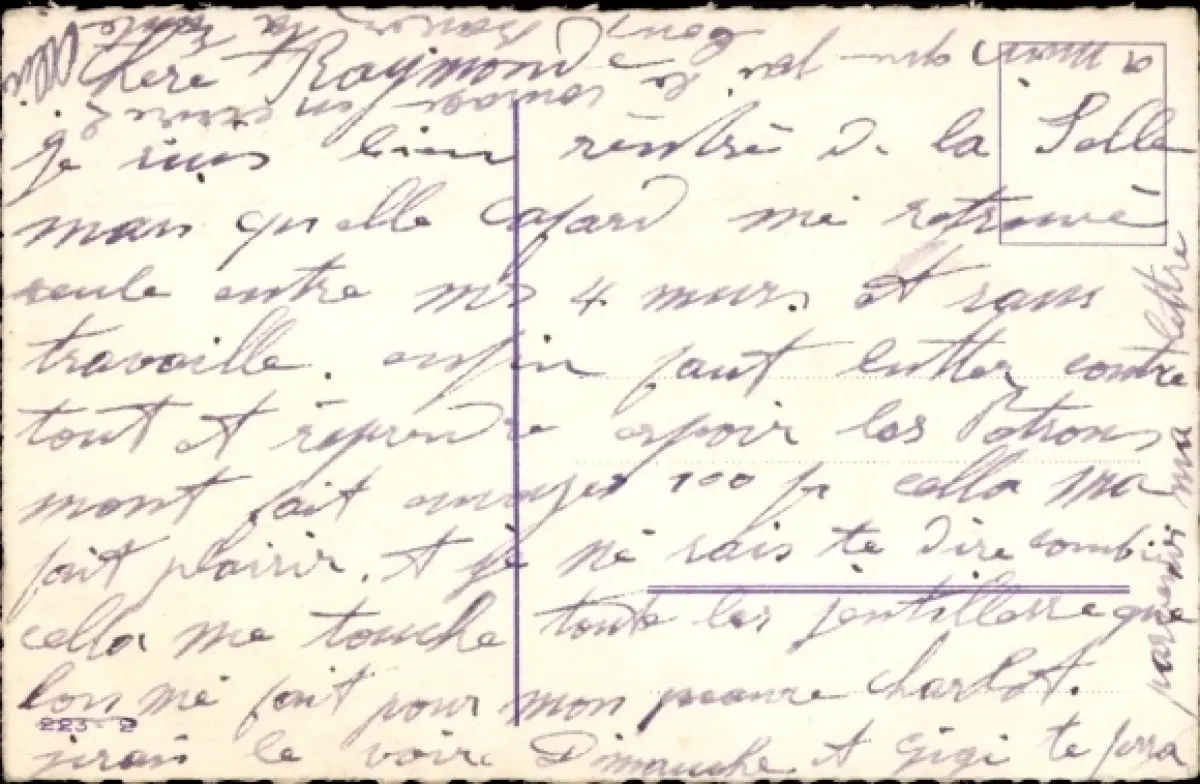 Chère Raymonde
je suis bien rentrè de la Selle
mais quelle cafard me retrouvè
seule entre mes 4 murs et sans
travaille. enfin faut lutter contre
tout et reprendre espoir les Patrons
mont fait envoyer 100 fr cella ma
fait plaisir. et je ne sais te dire combi
cella me touche toute les jentillesse que
lon me fait pour mon pauvre Charlot.
jirais le voir Dimanche et Gigi te ferra
parvenir ma lettre
223-2